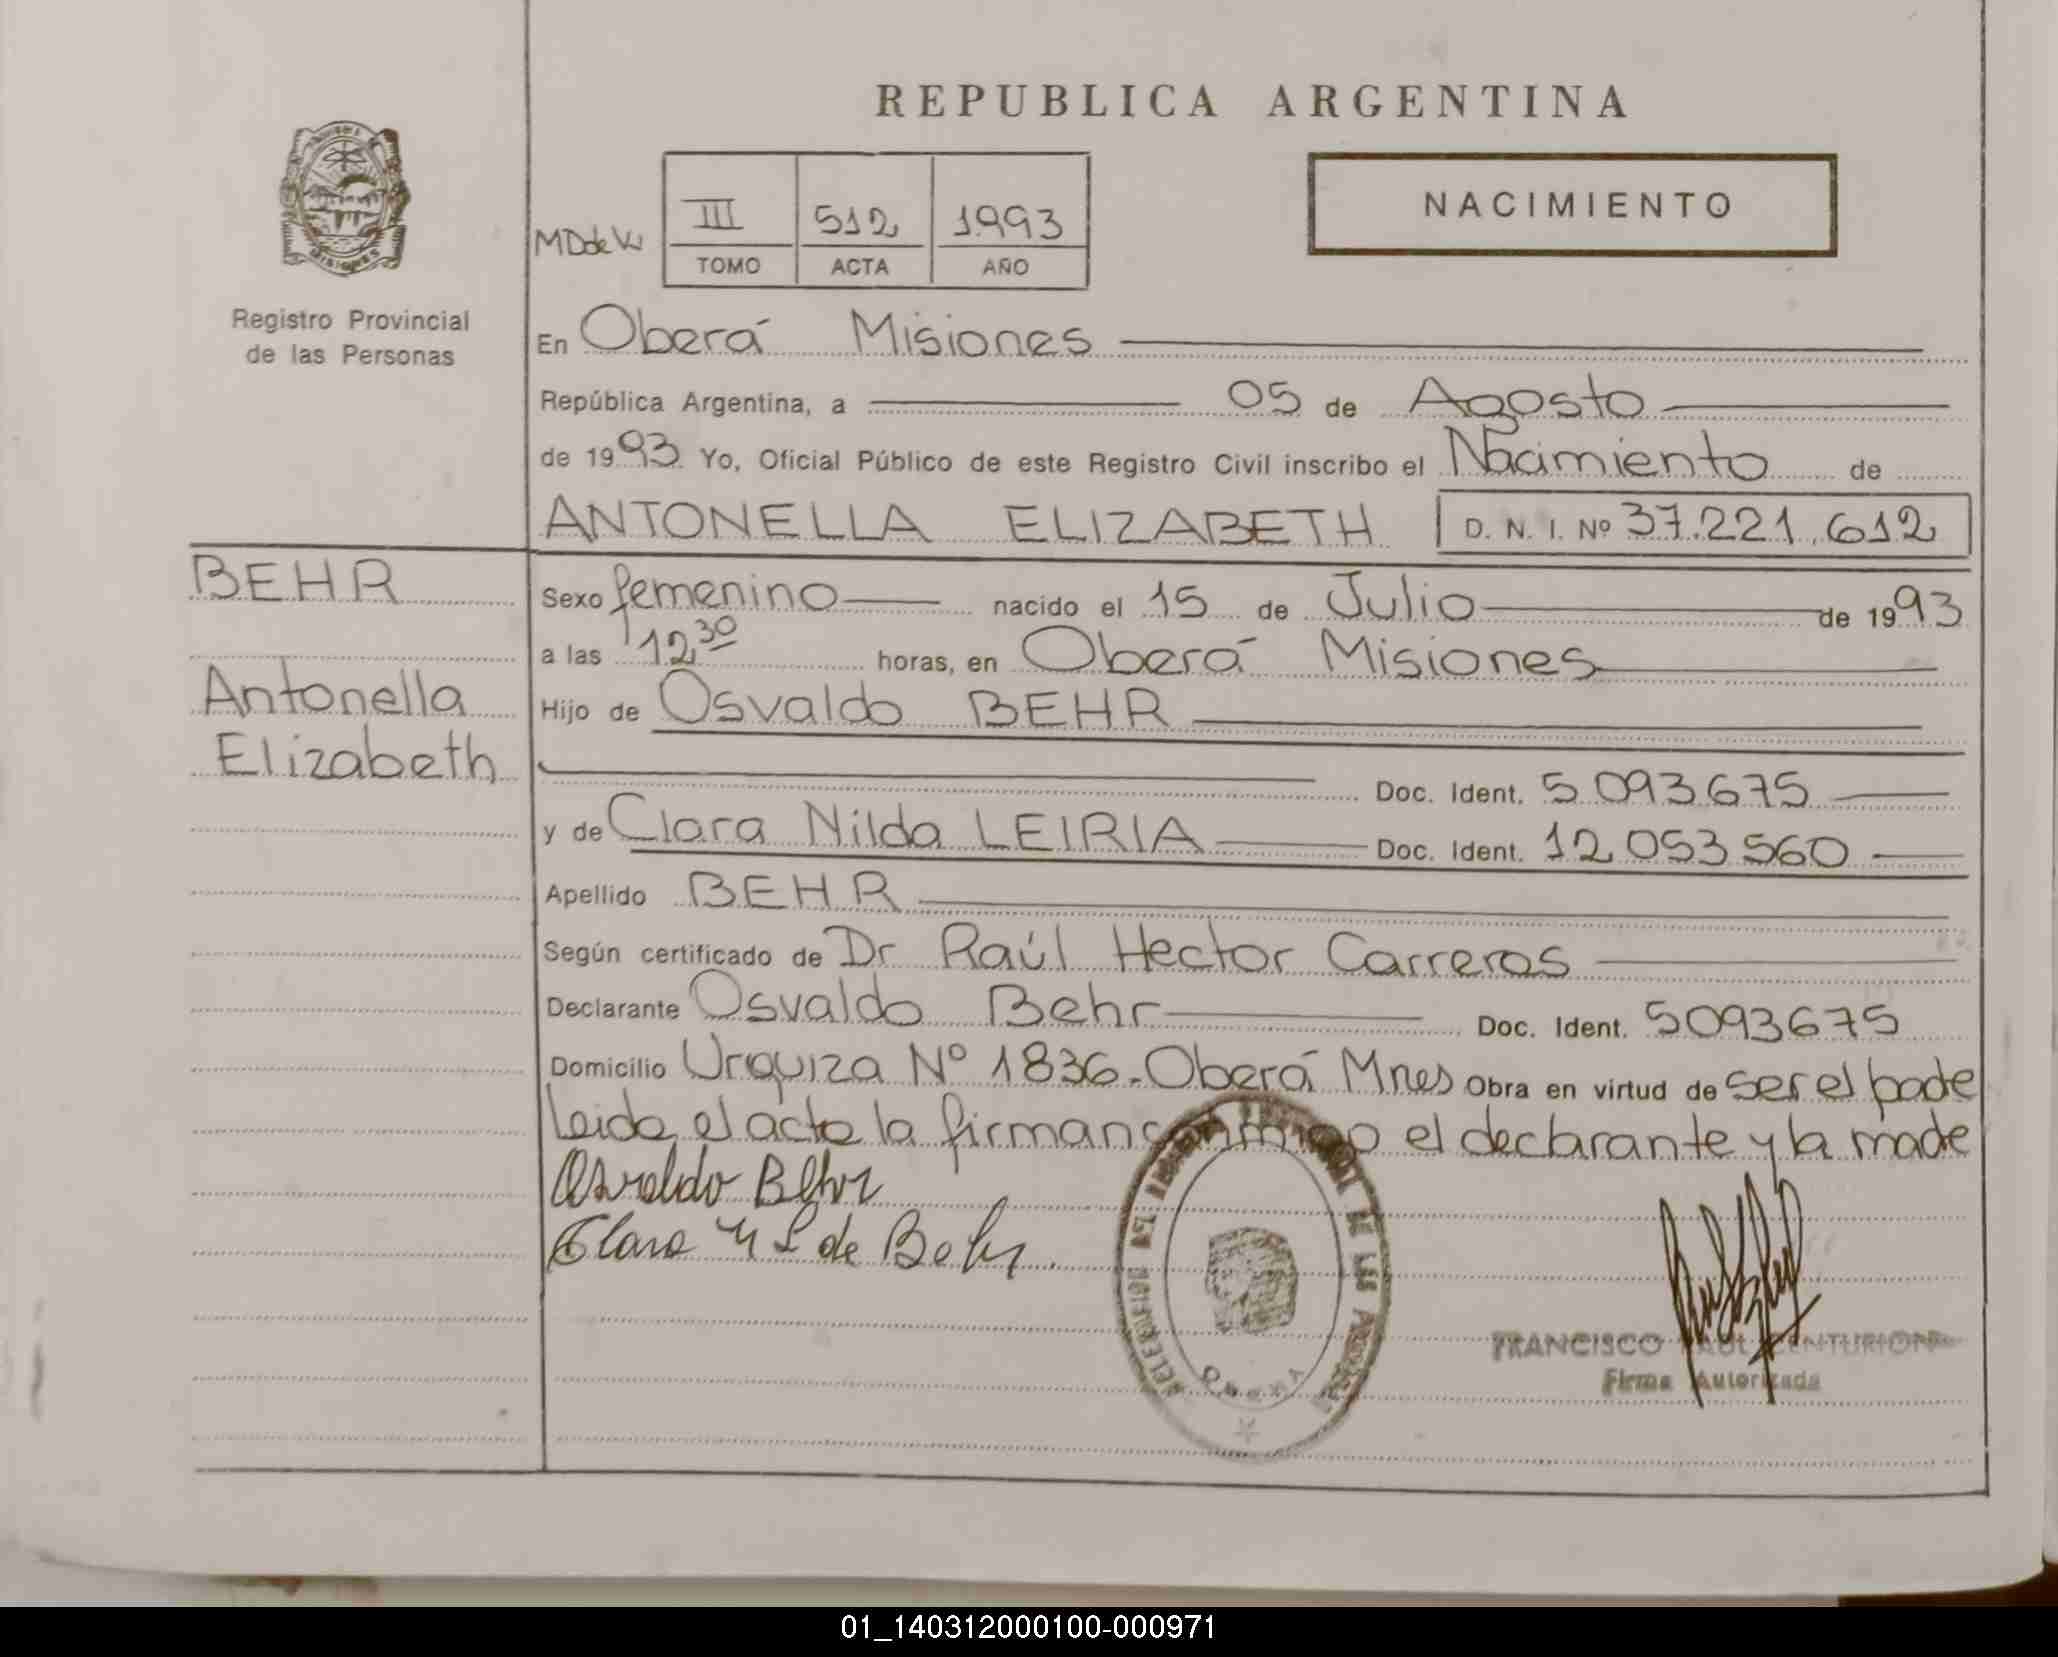 REPUBLICA ARGENTINA
NACIMIENTO
MISIONES
Registro Provincial
de las Personas
III 512 1993
TOMO ACTA AÑO
En Oberá Misiones
República Argentina, a 05 de Agosto
de 1993 Yo, Oficial Público de este Registro Civil inscribo el Nacimiento de
ANTONELLA ELIZABETH D. N. I. Nº 37.221.612
BEHR
Antonella
Elizabeth
Sexo femenino nacido el 15 de Julio de 1993
a las 12,30 horas, en Oberá Misiones
Hijo de Osvaldo BEHR
Doc. Ident. 5.093.675
y de Clara Nilda LEIRIA Doc. Ident. 12.053.560
Apellido BEHR
Según certificado de Dr Raúl Hector Carreras
Declarante Osvaldo Behr Doc. Ident. 5093675
Domicilio Urquiza Nº 1836-Oberá Mnes Obra en virtud de ser el padre
Leida el acta la firman conmigo el declarante y la madre
Osvaldo Behr
Clara N L de Behr.
DE LAS
OBERA
FRANCISCO RAUL CENTURION
Firma Autorizada
01_140312000100-000971